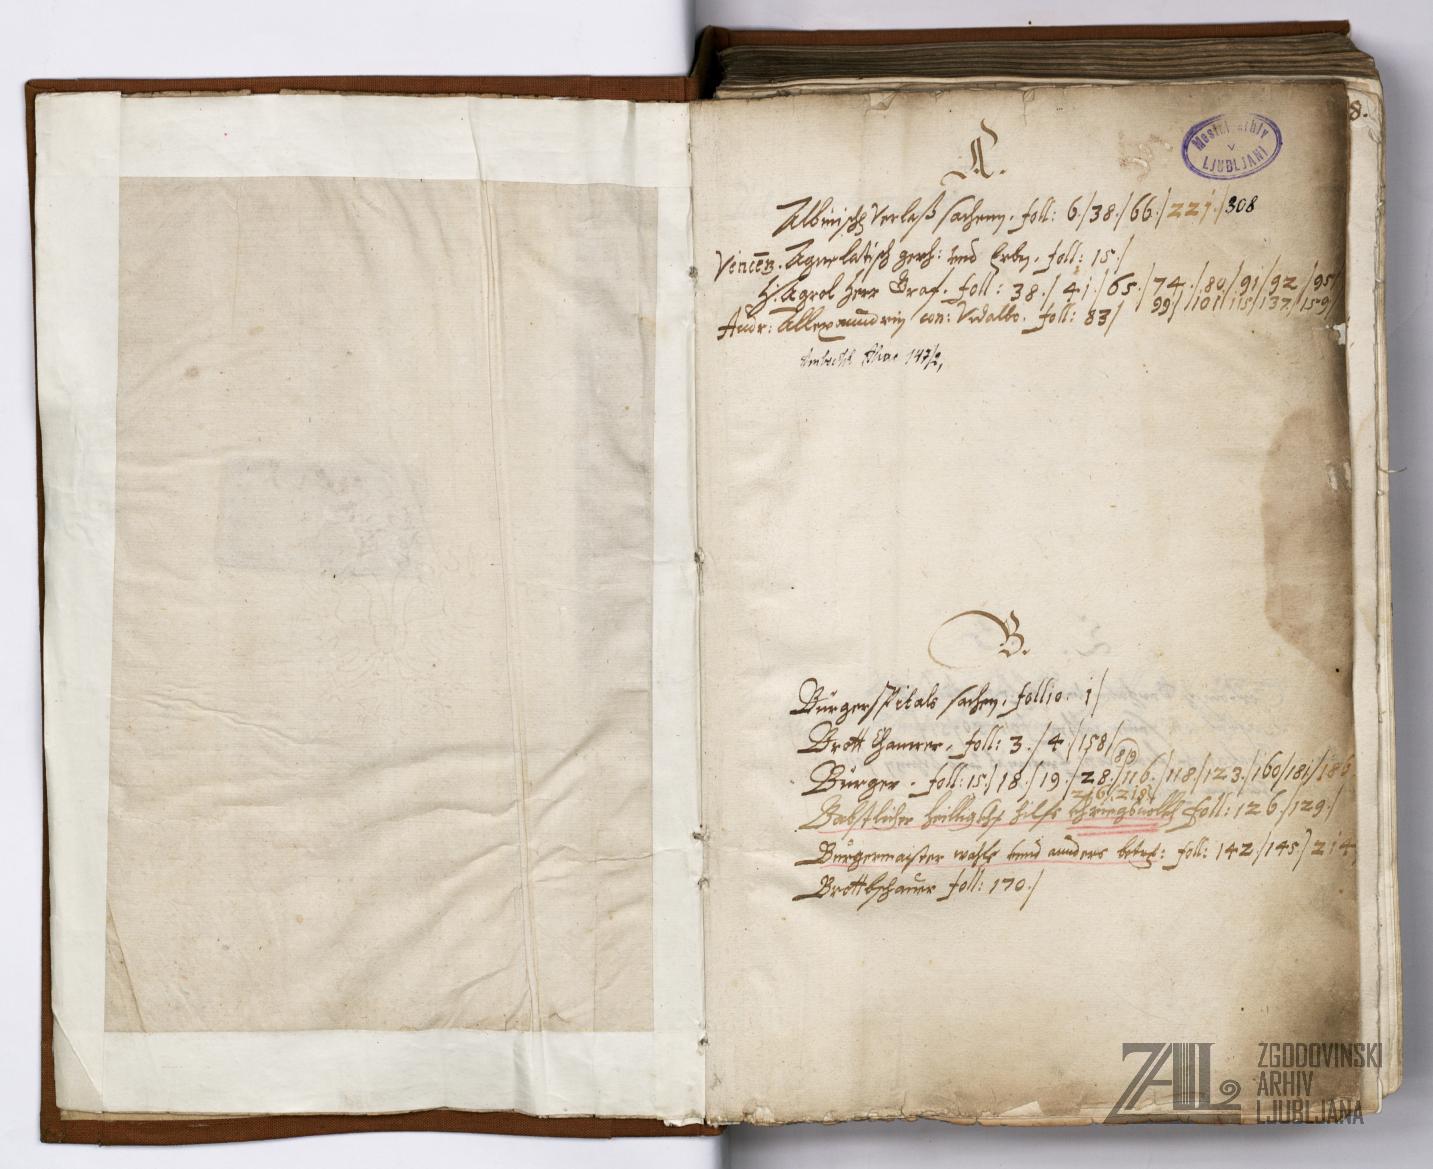 8.
Mestni arhiv
v
LJUBLJANI
A.
Albinisch Verlaß sachen. foll: 6./38./66./221./308
Vincenz. Agnelatisch gerh: und Erben. foll: 15./
H: Agrol Herr Graf. foll: 38./41./65./74./80./91/92/95/
99/101/115/137/159/
Andr: Allexandrin con: Vidalbo. foll: 83/
B.
Bürgerspitals sachen. follio: 1/
Brott Cammer. foll: 3./4./158/
89
Bürger. foll: 15./18./19./28./116./118./123./160/181/186
216/218/
Babstlicher Heilligkh: Hilfs khriegsvolkh foll: 126./129./
Bürgermaister wahls unnd anders betref: foll: 142./145./214
Brottbschauer foll: 170./
ZAL
ZGODOVINSKI
ARHIV
LJUBLJANA